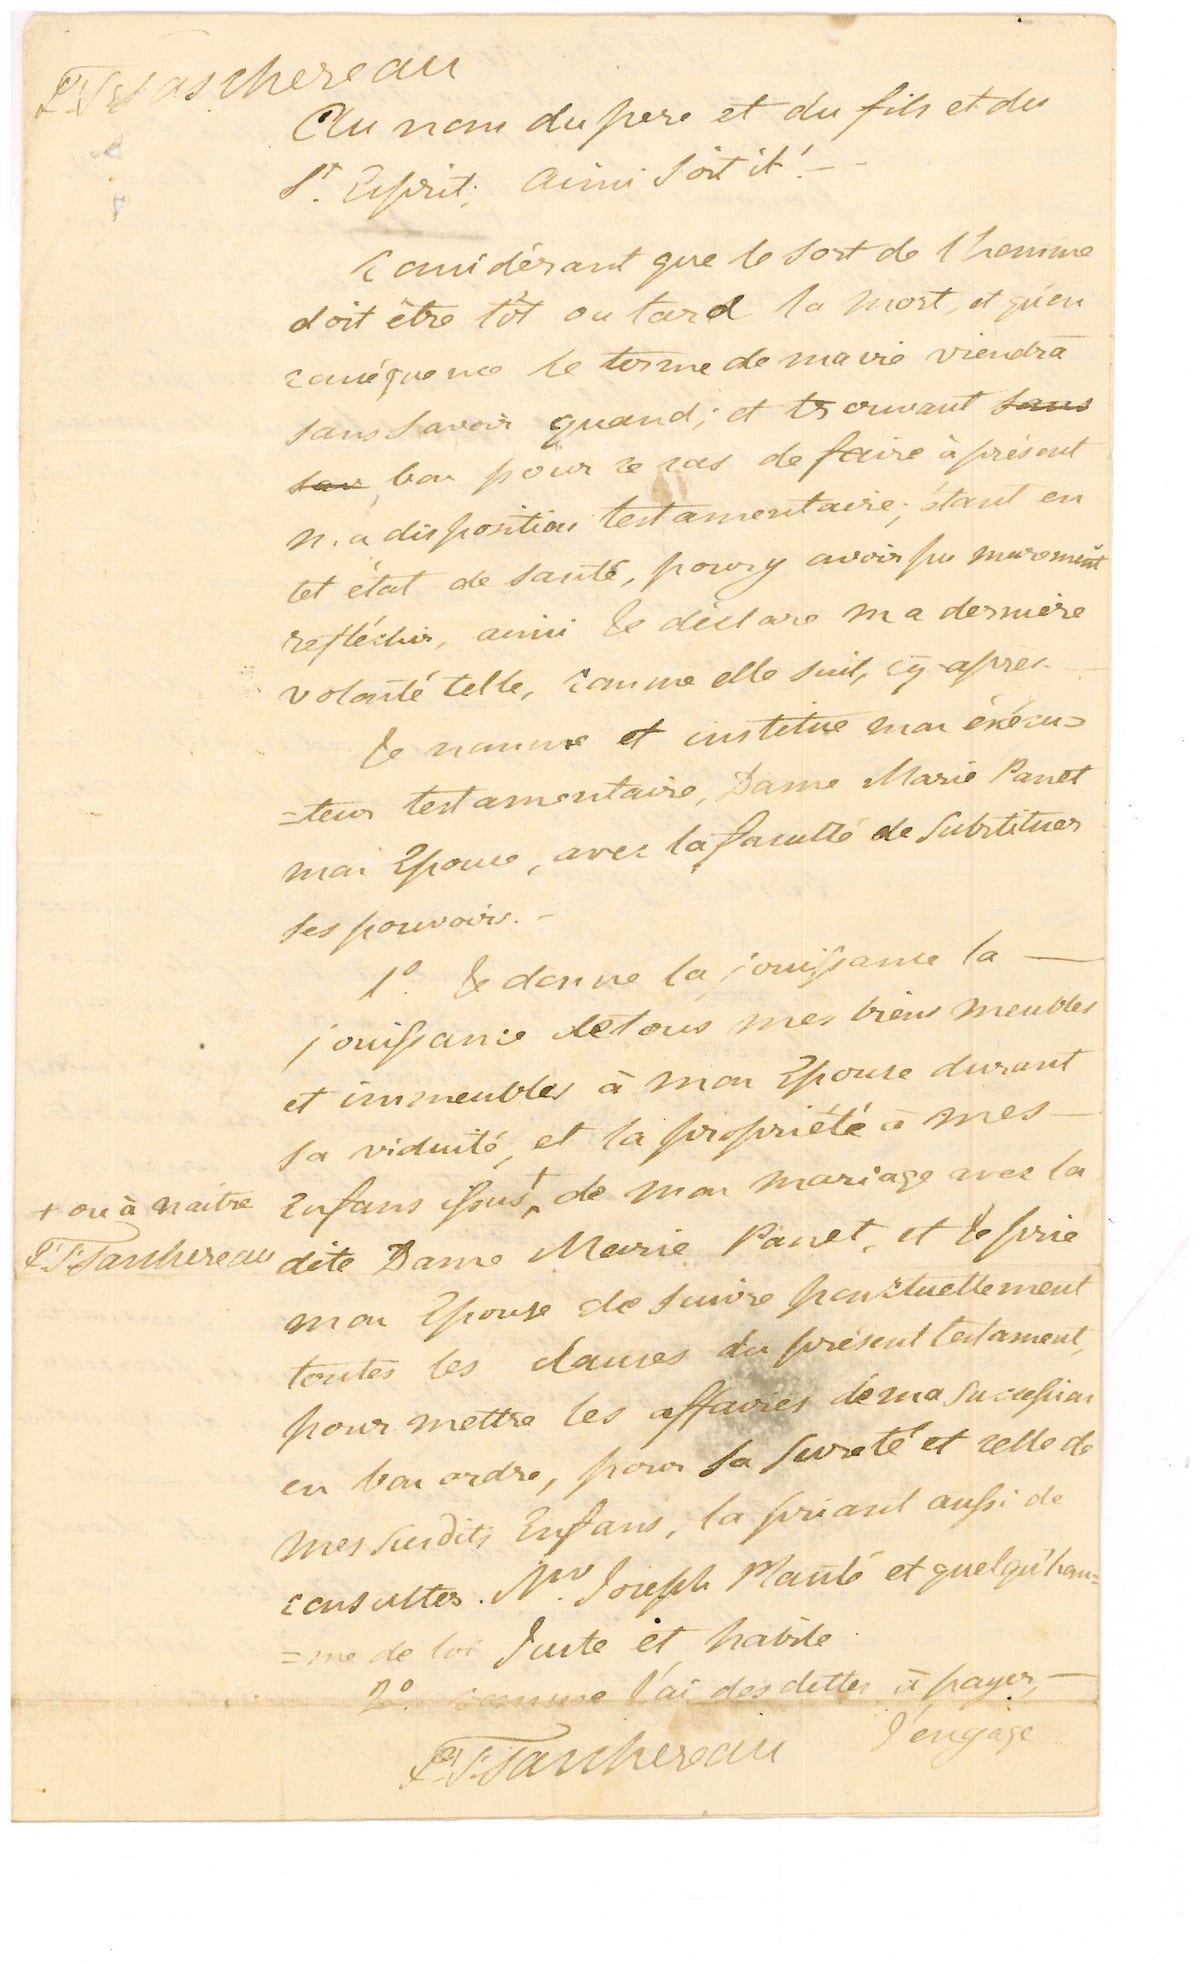 Ls Taschereau
Au nom du pere et du fils et du
St. Esprit; Ainsi soit il! - -
Considérant que le sort de l'homme
doit être tôt ou tard la mort, et qu'en
conséquence le terme de ma vie viendra
sans savoir quand; et trouvant sans
sav bon pour ce cas de faire à présent
ma disposition testamentaire; étant en
tet état de santé, pour y avoir pu murement
refléchir, ainsi Je déclare ma dernière
volonté telle, comme elle suit, cy-après
Je nomme et institue mon éxécu=
=teur testamentaire, Dame Marie Panet
mon Epouse, avec la faculté de substituer
ses pouvoirs. -
1o. Je donne la jouissance la —
jouissance de tous mes biens meubles
et immeubles à mon Epouse durant
sa viduité, et la propriété à mes —
Enfans issus + de mon mariage avec la
+ ou à naître
Taschereau
dite Dame Marie Panet, et Je prie
mon Epouse de suivre ponctuellement
toutes les clauses du présent testament,
pour mettre les affaires de ma succession
en bon ordre, pour sa sureté et celle de
mes susdits Enfans, la priant aussi de
consulter Mr. Joseph Planté et quelqu'hom=
=me de loi Juste et habile.
2o. comme J'ai des dettes à payer, —
J'engage
Taschereau